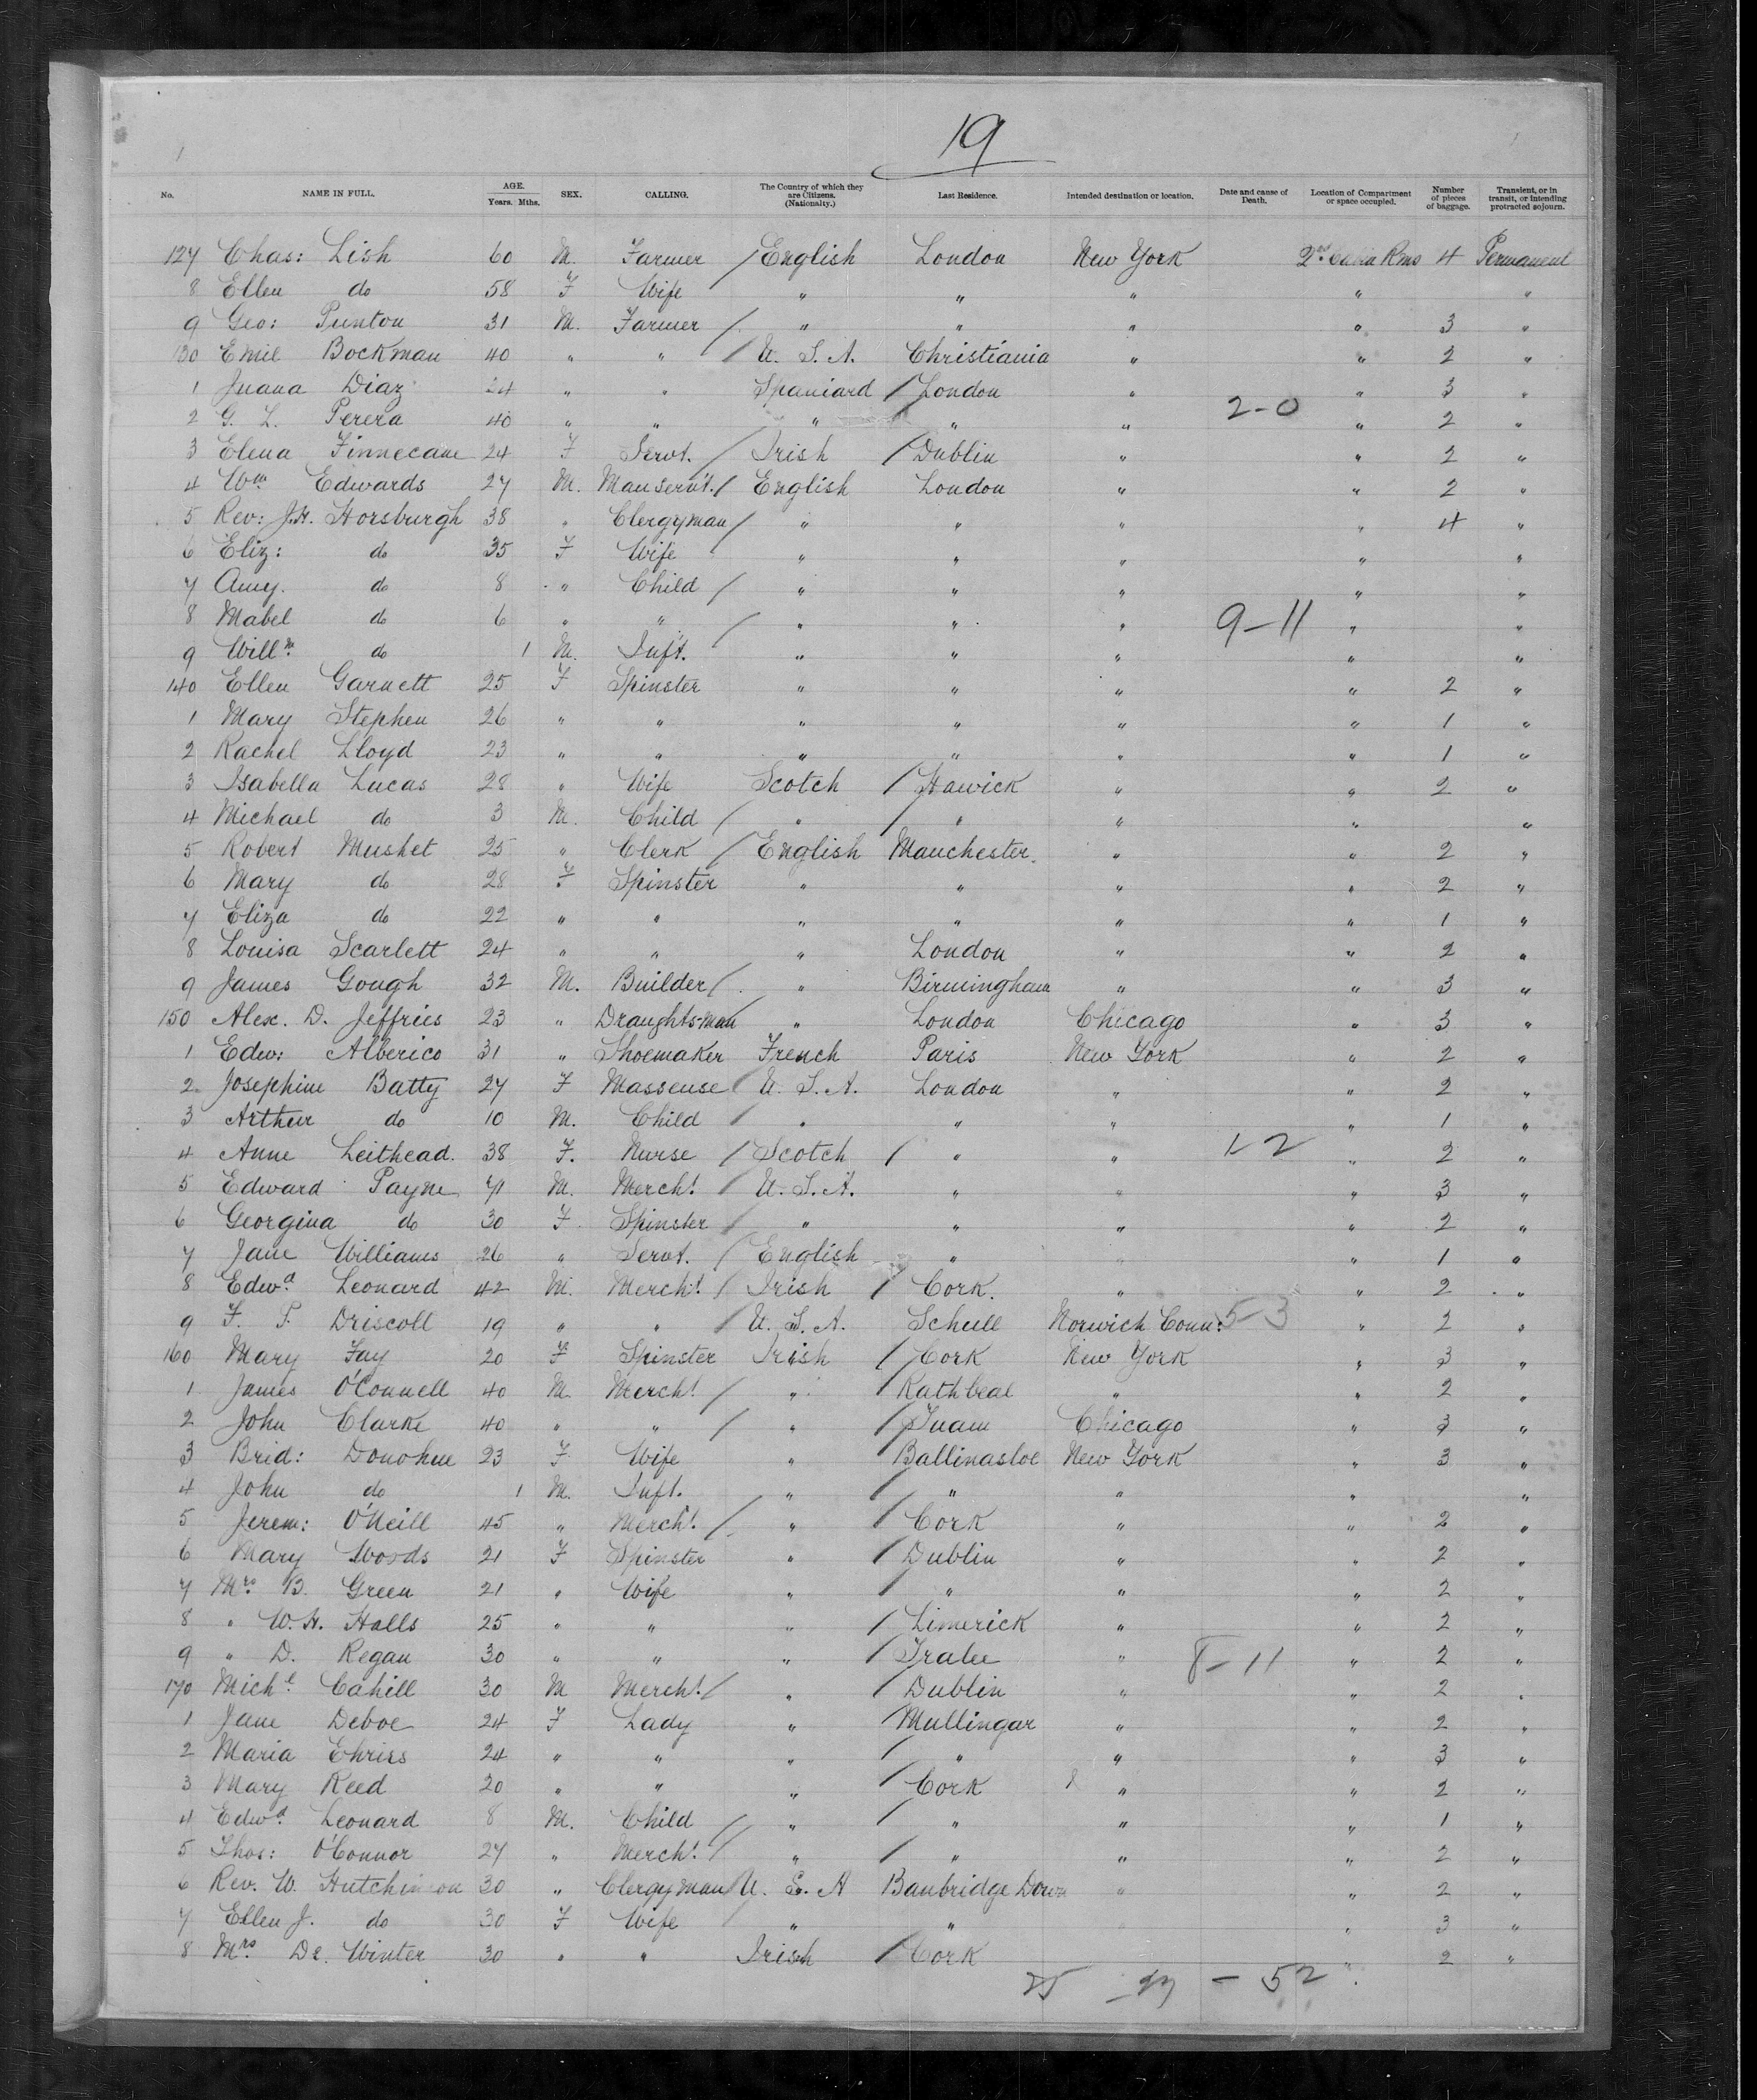 19
No. NAME IN FULL. AGE. Years. Mths. SEX. CALLING. The Country of which they are Citizens. (Nationality.) Last Residence. Intended destination or location. Date and cause of Death. Location of Compartment or space occupied. Number of pieces of baggage. Transient, or in transit, or intending protracted sojourn.
127 Chas: Lish 60 M. Farmer / English London New York 2nd Cabin Rms 4 Permanent
8 Ellen do 58 F Wife " " " " "
9 Geo: Punton 31 M. Farmer / " " " " 3 "
130 Emil Bockman 40 " " / U. S. A. Christiania " " 2 "
1 Juana Diaz 24 " " Spaniard / London " " 3 "
2 G. L. Perera 40 " " " " " 2-0 " 2 "
3 Elena Finnecane 24 F Servt. / Irish / Dublin " " 2 "
4 Wm Edwards 27 M. Manservt. / English London " " 2 "
5 Rev: J.H. Horsburgh 38 " Clergyman / " " " " 4 "
6 Eliz: do 35 F Wife " " " " "
7 Amy. do 8 " Child / " " " " "
8 Mabel do 6 " " / " " " 9-11 " "
9 Willm do 1 M. Inft. " " " " "
140 Ellen Garnett 25 F Spinster " " " " 2 "
1 Mary Stephen 26 " " " " " " 1 "
2 Rachel Lloyd 23 " " " " " " 1 "
3 Isabella Lucas 28 " Wife Scotch / Hawick " " 2 "
4 Michael do 3 M. Child / " / " " " "
5 Robert Mushet 25 " Clerk / English Manchester. " " 2 "
6 Mary do 28 F Spinster " " " " 2 "
7 Eliza do 22 " " " " " " 1 "
8 Louisa Scarlett 24 " " " London " " 2 "
9 James Gough 32 M. Builder / " Birmingham " " 3 "
150 Alex. D. Jeffries 23 " Draughtsman " London Chicago " 3 "
1 Edw: Alberico 31 " Shoemaker French Paris New York " 2 "
2 Josephine Batty 27 F Masseuse / U. S. A. London " " 2 "
3 Arthur do 10 M. Child / " " " " 1 "
4 Anne Leithead. 38 F. Nurse / Scotch / " " 1-2 " 2 "
5 Edward Payne 71 M. Mercht. U. S. A. " " " 3 "
6 Georgina do 30 F Spinster / " " " " 2 "
7 Jane Williams 26 " Servt. / English " " " 1 "
8 Edwd Leonard 42 M. Mercht. / Irish / Cork. " " 2 "
9 F. P. Driscoll 19 " " / U. S. A. Schull Norwich Conn: 5-3 " 2 "
160 Mary Fay 20 F Spinster Irish / Cork New York " 3 "
1 James O'Connell 40 M. Mercht. / " / Rathbeal " " 2 "
2 John Clarke 40 " " / " / Tuam Chicago " 3 "
3 Brid: Donohue 23 F Wife " / Ballinasloe New York " 3 "
4 John do 1 M. Inft. " / " " " "
5 Jerem: O'Neill 45 " Mercht. / " / Cork " " 2 "
6 Mary Woods 21 F Spinster " / Dublin " " 2 "
7 Mrs B. Green 21 " Wife " / " " " 2 "
8 " W. H. Halls 25 " " " / Limerick " " 2 "
9 " D. Regan 30 " " " / Tralee " 8-11 " 2 "
170 Michl Cahill 30 M Mercht. / " / Dublin " " 2 "
1 Jane Deboe 24 F Lady " / Mullingar " " 2 "
2 Maria Ehrirs 24 " " " / " " " 3 "
3 Mary Reed 20 " " " / Cork " " 2 "
4 Edwd Leonard 8 M. Child / " / " " " 1 "
5 Thos: O'Connor 27 " Mercht. / " / " " " 2 "
6 Rev. W. Hutchinson 30 " Clergyman / U. S. A Banbridge Down " " 2 "
7 Ellen J. do 30 F Wife / " " " 3 "
8 Mrs De Winter 30 " " Irish / Cork " 2 "
25 - 27 - 52